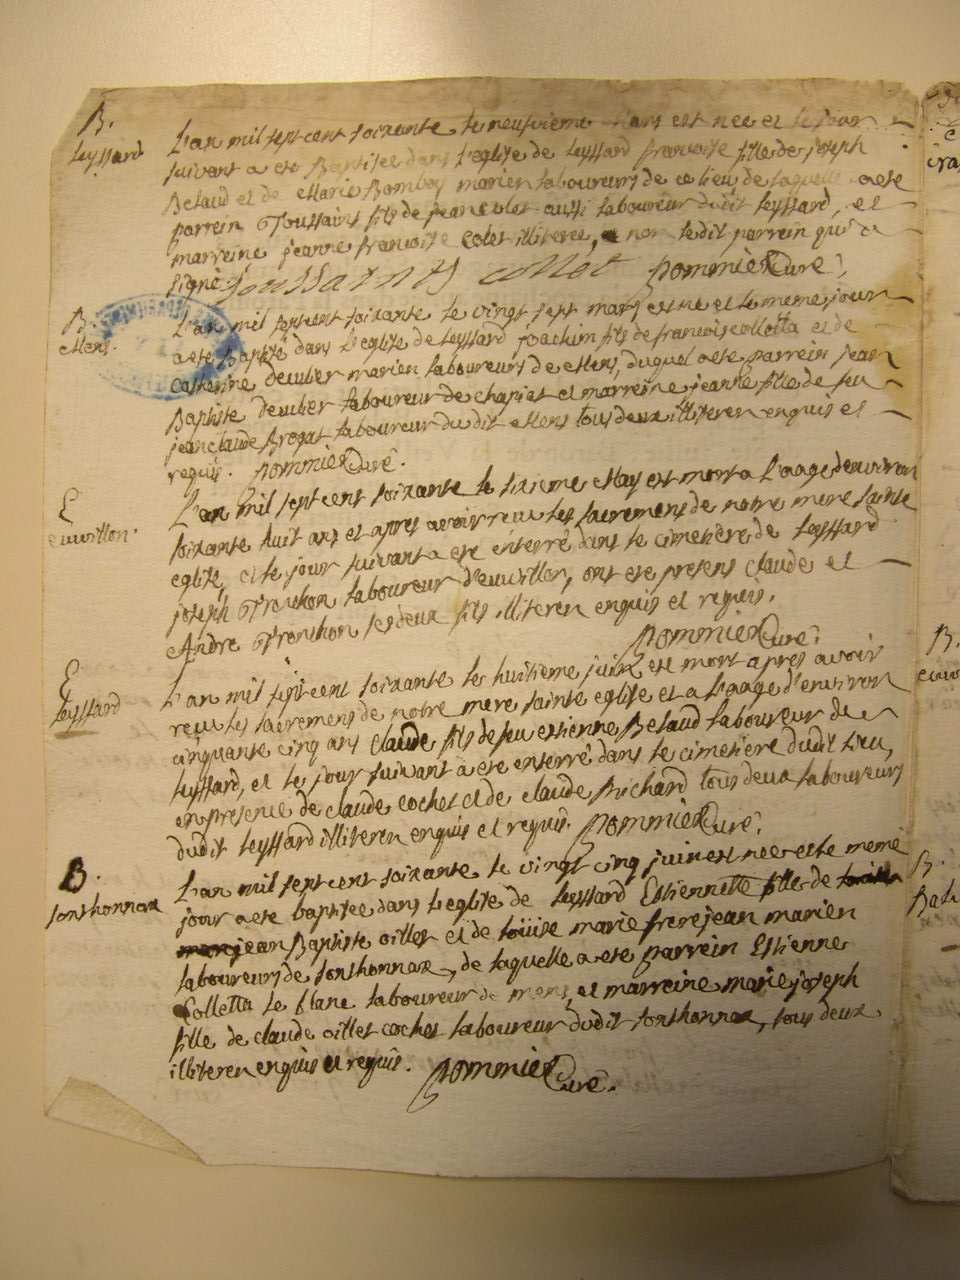 B.
Leyssard
L'an mil sept cent soixante le neufvieme Mars est nee et le jour
suivant a ete Baptisee dans l'eglise de Leyssard francoise fille de joseph
Betaud et de Marie Bomboy mariés laboureurs de ce lieu de laquelle a ete
parrein Toussaint fils de jean colet aussi laboureur dudit leyssard, et
marreine jeanne francoise Colet illiteree, non ledit parrein qui a
signé Toussaints collet pommier Curé.
B.
Mens.
L'an mil sept cent soixante le vingt sept mars est né et le meme jour
a ete Baptisé dans l'eglise de Leyssard joachim fils de francois colletta et de
Catherine Deculier mariés laboureurs de Mens, duquel a ete parrein jean
Baptiste Deculier laboureur de chapiat et marreine jeanne fille de feu
jean claude Brogat laboureur du dit Mens tous deux illiteres enquis et
requis. pommier Curé.
E
L'an mil sept cent soixante le sixieme May est mort a l'aage denviron
soixante huit ans et apres avoir receu les sacremens de notre mere sainte
eglise, et le jour suivant a ete enterré dans le cimetiere de Leyssard
joseph Tronchon laboureur, ont ete presens claude et
Andre Tronchon ses deux fils illiteres enquis et requis.
pommier Curé.
E
Leyssard
L'an mil sept cent soixante le huitieme juin est mort apres avoir
receu les sacremens de notre mere sainte eglise et a l'aage d'environ
cinquante cinq ans claude fils de feu estienne Betaud laboureur de
leyssard, et le jour suivant a ete enterré dans le cimetiere dudit lieu,
en presence de claude cochet et de claude Brichard tous deux laboureurs
dudit leyssard illiteres enquis et requis. pommier Curé.
B.
sonthonnax
L'an mil sept cent soixante le vingt cinq juin est nee et le meme
jour a ete baptisee dans l'eglise de Leyssard Estiennette fille de
jean Baptiste oillet et de louise marie frerejean mariés
laboureurs de sonthonnax, de laquelle a ete parrein Estienne
Colletta le blanc laboureur de mens, et marreine marie joseph
fille de claude oillet cochet laboureur dudit sonthonnax, tous deux
illiteres enquis et requis. pommier Curé.
B.
B.